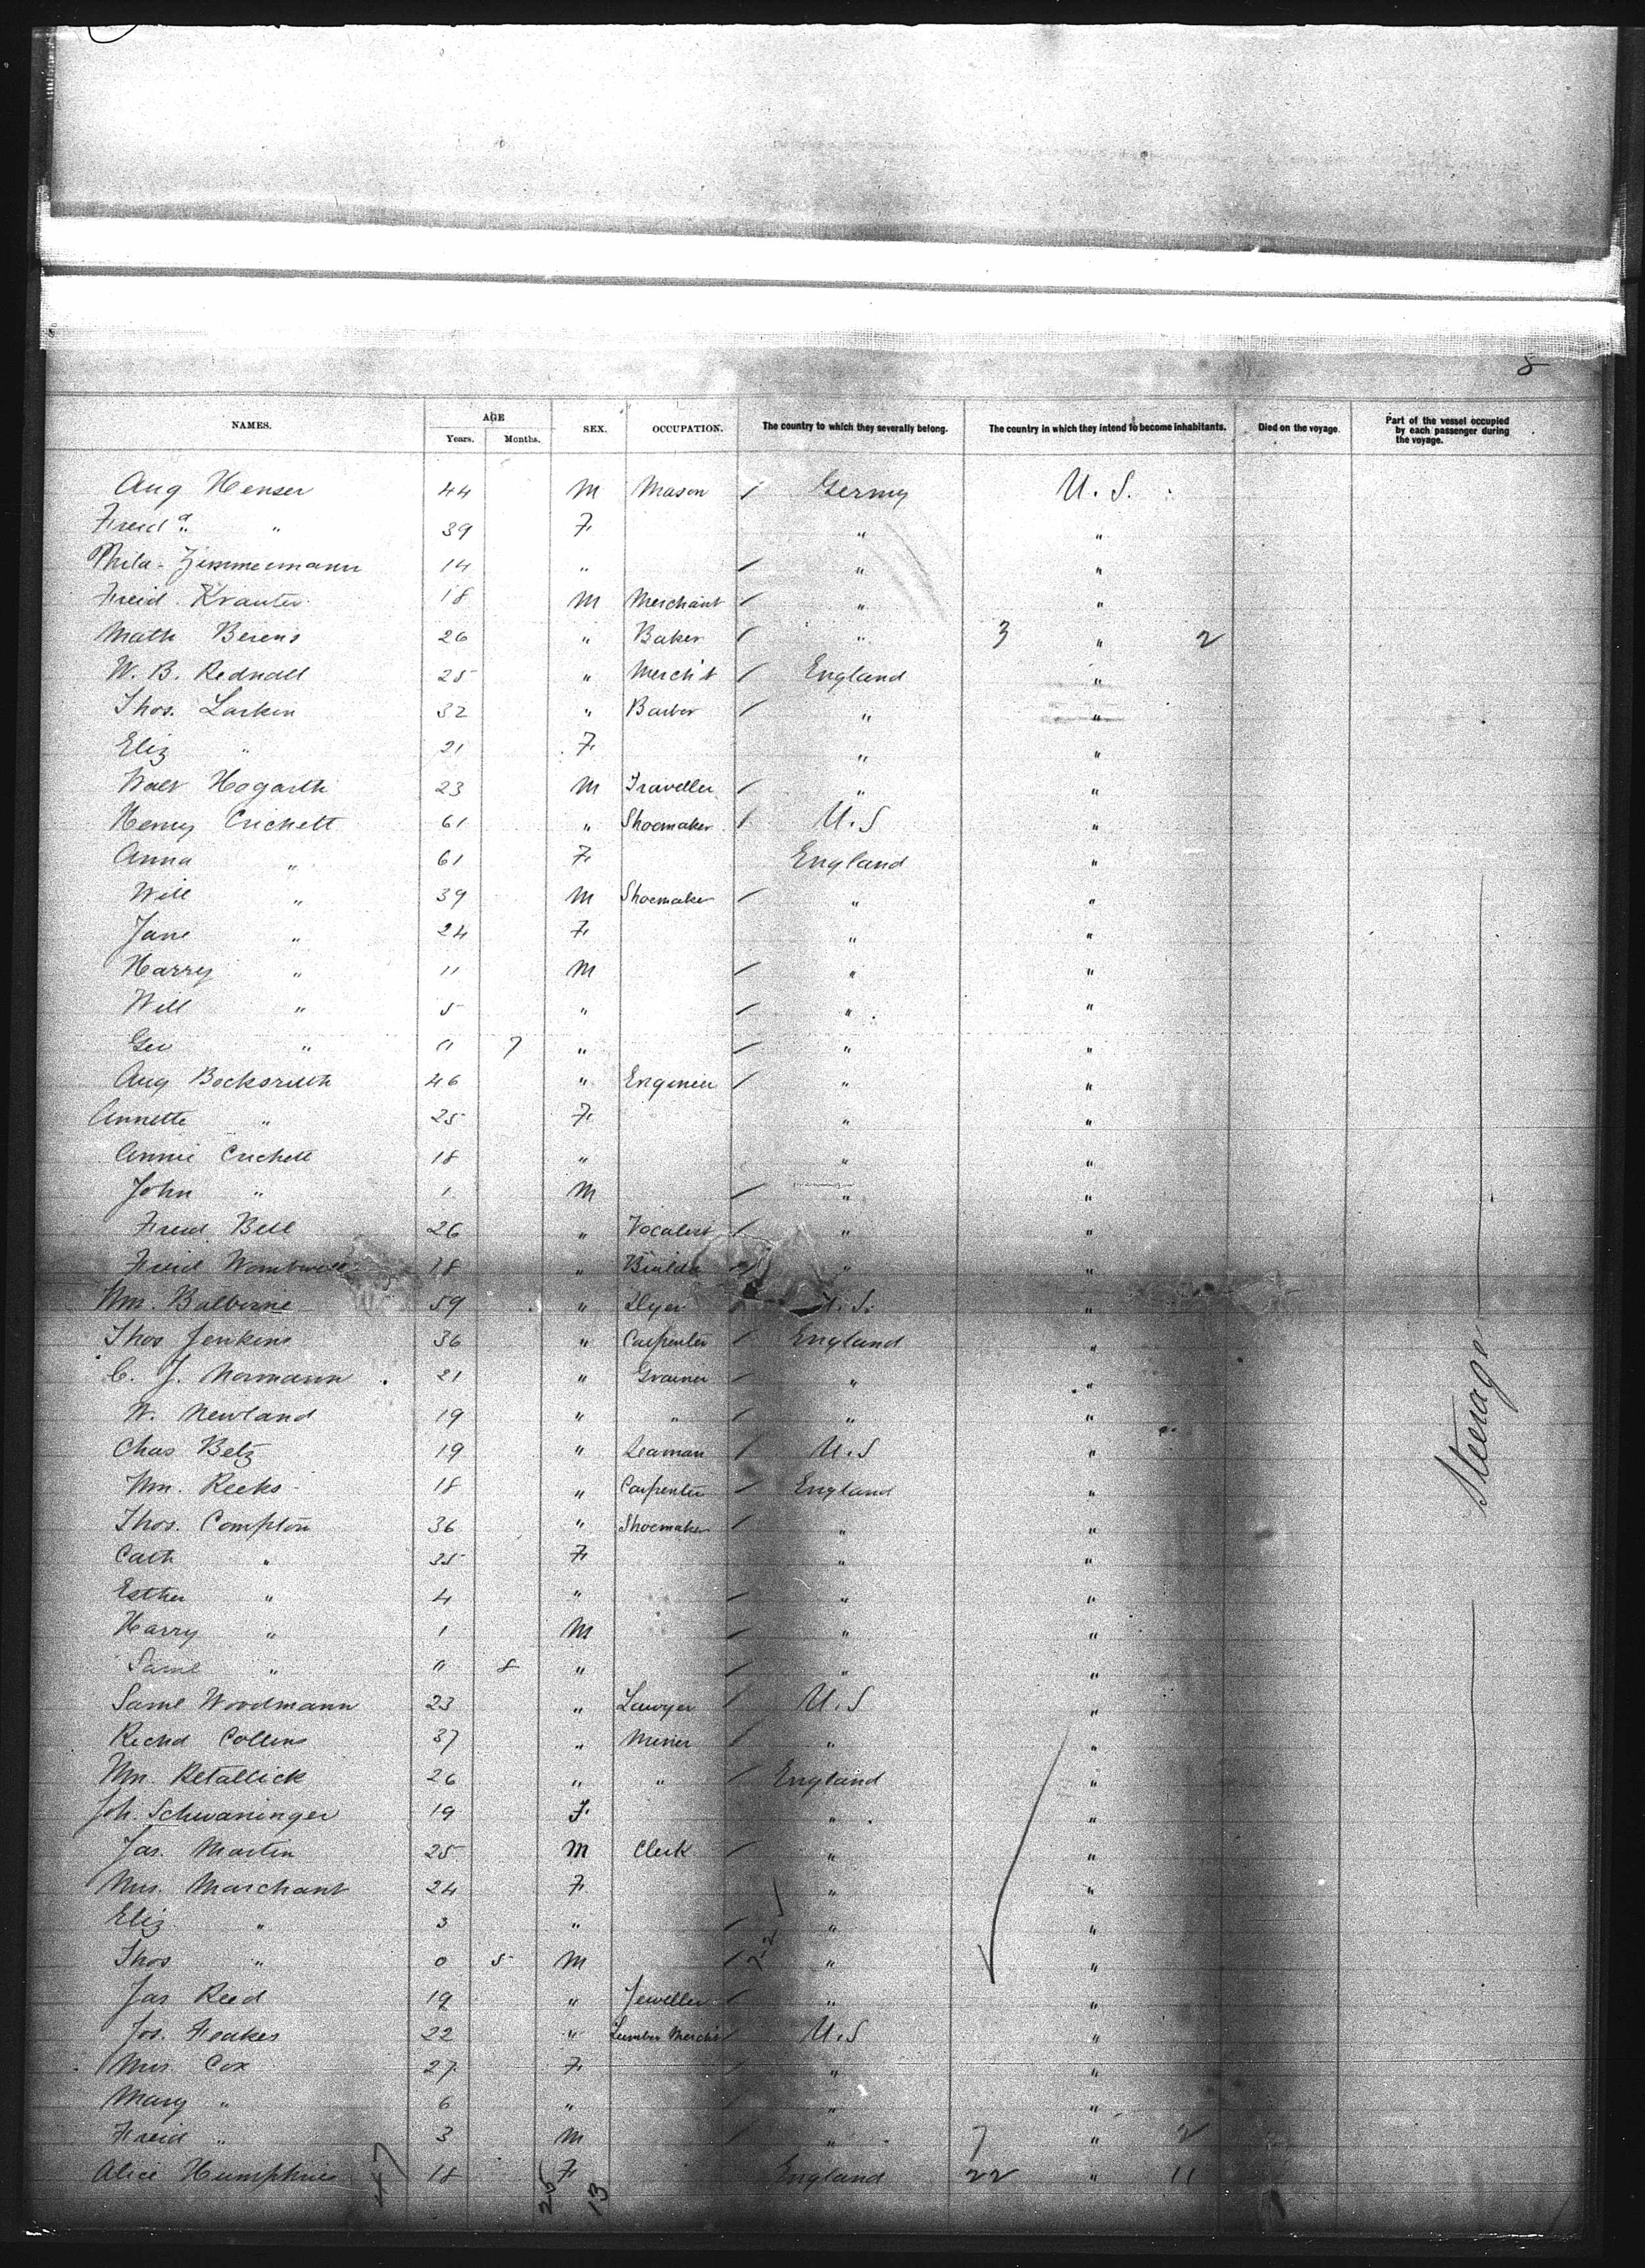 8
NAMES. AGE Years. Months. SEX. OCCUPATION. The country to which they severally belong. The country in which they intend to become inhabitants. Died on the voyage. Part of the vessel occupied by each passenger during the voyage.
Aug Henser 44 M Mason / Germy U. S.
Freida " 39 F " "
Mila Zimmermann 14 " / " "
Freid Krauter 18 M Merchant / " "
Math Berens 26 " Baker / " 3 " 2
W. B. Rednall 25 " Merch't / England "
Thos. Larkin 32 " Barber / " "
Eliz " 21 F " "
Walr Hogarth 23 M Traveller / " "
Henry Crichett 61 " Shoemaker / U.S "
Anna " 61 F England "
Will " 39 M Shoemaker / " "
Jane " 24 F " "
Harry " 11 M / " "
Will " 5 " / " "
Geo " " 7 " / " "
Aug Bocksruth 46 " Engineer / " "
Annette " 25 F " "
Annie Crichett 18 " " "
John " 1 M / " "
Freid Bell 26 " Vocalist / " "
Freid 18 " Builder " "
Wm. Balbirnie 59 " Dyer U.S. "
Thos Jenkins 36 " Carpenter / England "
C. J. Normann 21 " Grainer / " "
W. Newland 19 " " / " "
Chas Betz 19 " Seaman / U.S "
Wm. Reeks 18 " Carpenter / England "
Thos. Compton 36 " Shoemaker / " "
Cath " 35 F " "
Esther " 4 " / " "
Harry " 1 M / " "
Saml " " 8 " / " "
Saml Woodmann 23 " Lawyer / U.S "
Richd Collins 37 " Miner / " "
Wm. Retallick 26 " " / England "
Joh. Schwaninger 19 F " "
Jas. Martin 25 M Clerk / " "
Mrs. Marchant 24 F " "
Eliz " 3 " / " "
Thos " 0 5 M / " "
Jas Reed 19 " Jeweller / " "
Jos. Feakes 22 " Lumber Merch't / U.S "
Mrs. Cox 27 F " "
Mary " 6 " / " "
Freid " 3 M / " 7 " 2
Alice Humphries 18 F England 22 " 11
Steerage
47 26 13